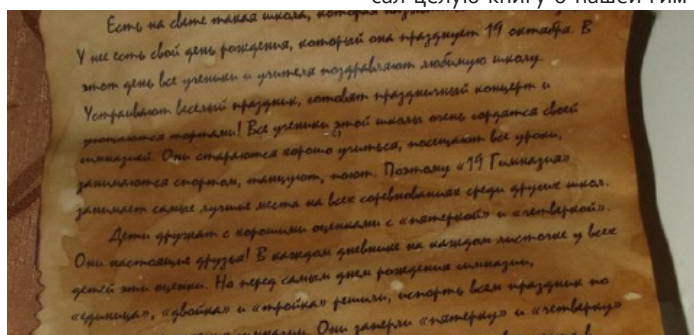 сал целую книгу о нашей гим
Есть на свете такая школа, которая
У нее есть свой день рождения, который она празднует 19 октября. В
этот день все ученики и учителя поздравляют любимую школу.
Устраивают веселый праздник, готовят праздничный концерт и
угощаются тортами! Все ученики этой школы очень гордятся своей
гимназией. Они стараются хорошо учиться, посещают все уроки,
занимаются спортом, танцуют, поют. Поэтому «19 Гимназия»
занимает самые лучшие места на всех соревнованиях среди других школ.
Дети дружат с хорошими оценками с «пятеркой» и «четверкой».
Они настоящие друзья! В каждом дневнике на каждом листочке у всех
детей эти оценки. Но перед самым днем рождения гимназии,
«единица», «двойка» и «тройка» решили, испорть всем праздник по
гимназии. Они заперли «пятерку» и «четверку»